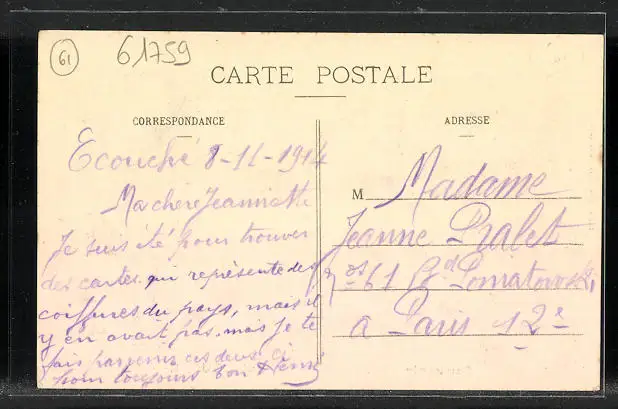 61
61759
CARTE POSTALE
CORRESPONDANCE
Ecouché 8-11-1914
Ma chère Jeannette
Je suis été pour trouver
des cartes qui représente des
coiffures du pays, mais il
y en avait pas mais je te
fais parvenir ces deux ci
pour toujours ton Henri
ADRESSE
M Madame
Jeanne
61 Bd
a Paris 12e